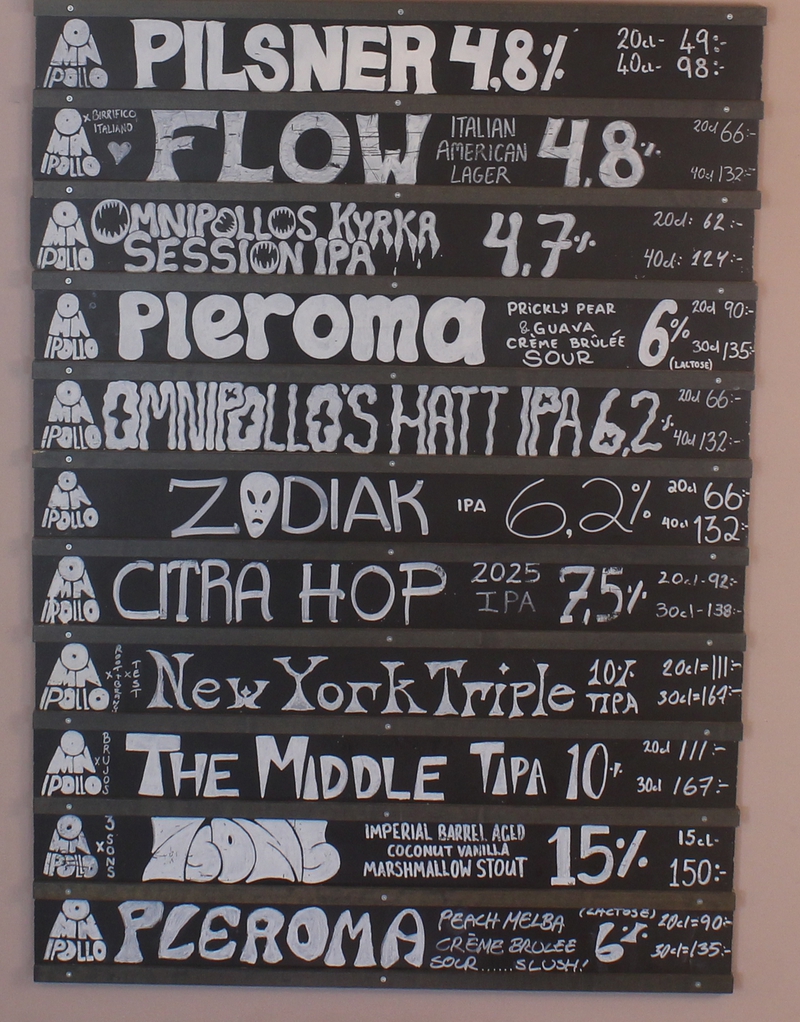 OMNIPOLLO PILSNER 4,8% 20cl- 49:-
40cl- 98:-
OMNIPOLLO x BIRRIFICO
ITALIANO
FLOW
ITALIAN
AMERICAN
LAGER
4,8%
20cl 66:-
40cl 132:-
OMNIPOLLO
OMNIPOLLOS KYRKA
SESSION IPA
4,7%
20cl: 62:-
40cl: 124:-
OMNIPOLLO
Pleroma
PRICKLY PEAR
& GUAVA
CRÈME BRÛLÉE
SOUR
6%
(LACTOSE)
20cl 90:-
30cl 135:-
OMNIPOLLO
OMNIPOLLO'S HATT IPA 6,2%
20cl 66:-
40cl 132:-
OMNIPOLLO
ZODIAK IPA 6,2%
20cl 66:-
40cl 132:-
OMNIPOLLO
CITRA HOP
2025
IPA
7,5%
20cl-92:-
30cl-138:-
OMNIPOLLO
x TEST
New York Triple
10%
TIPA
20cl=111:-
30cl=167:-
OMNIPOLLO x BRUJOS
THE MIDDLE TIPA 10%
20cl 111:-
30cl 167:-
OMNIPOLLO x 3 SONS
IMPERIAL BARREL AGED
COCONUT VANILLA
MARSHMALLOW STOUT
15%
15cl-
150:-
OMNIPOLLO
PLEROMA
PEACH MELBA
CRÈME BRULEE
SOUR......SLUSH!
(LACTOSE)
6%
20cl=90:-
30cl=135:-